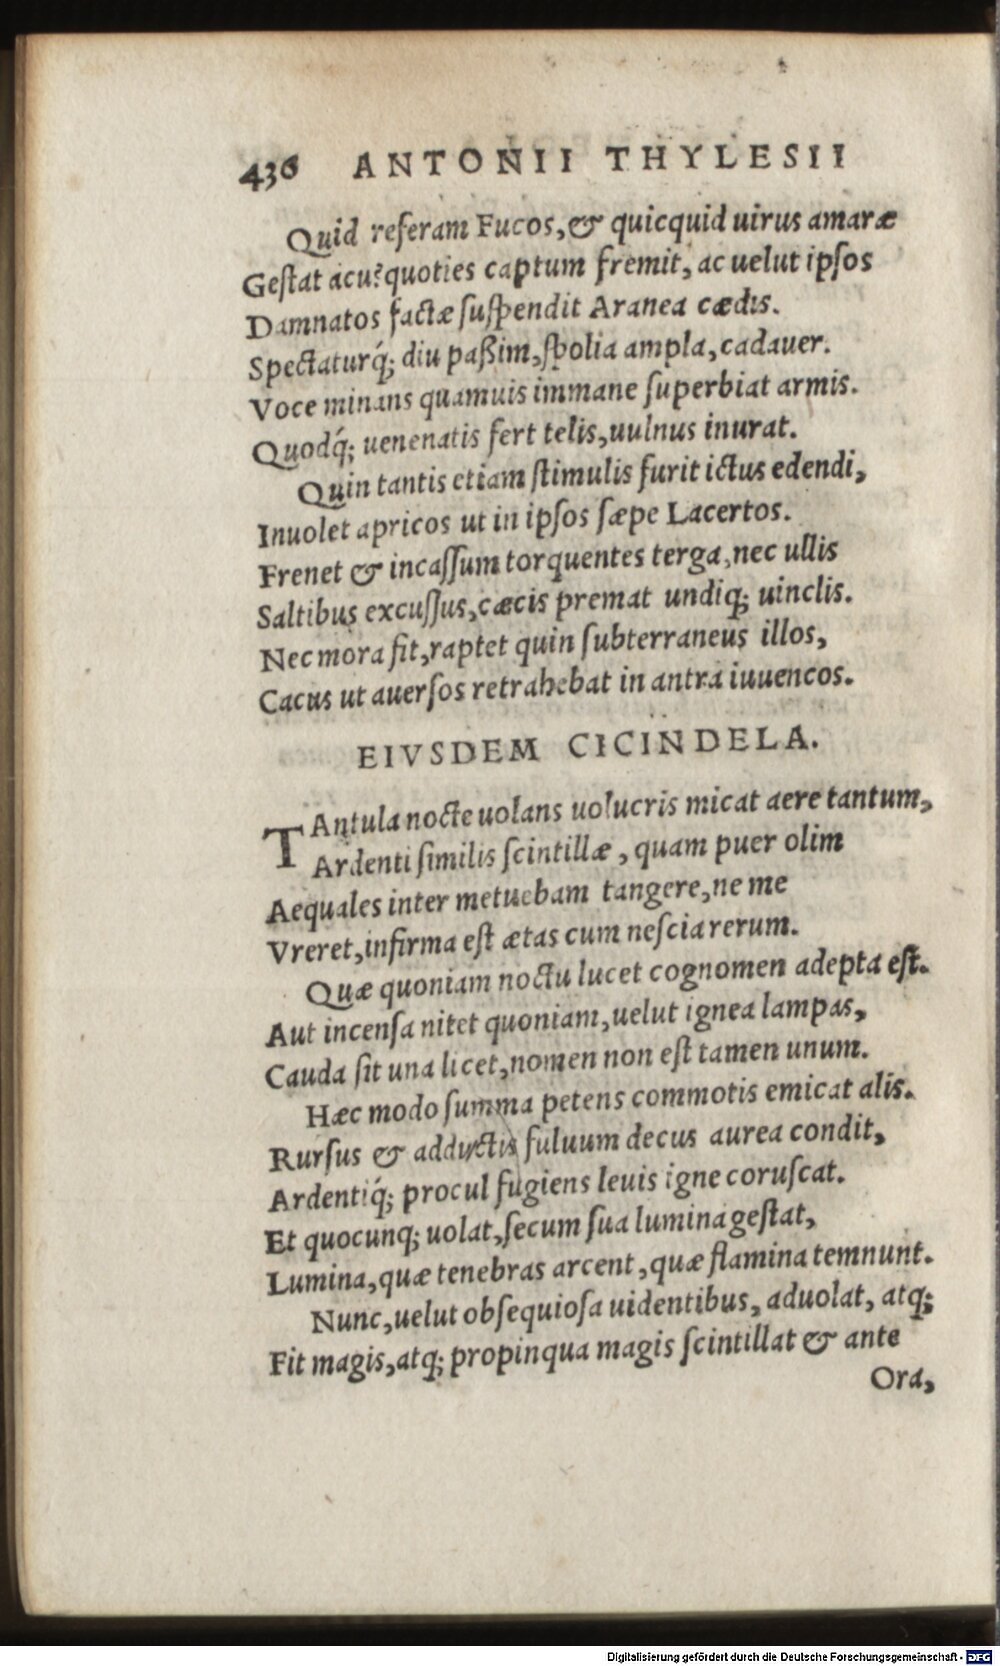 436 ANTONII THYLESII
Quid referam Fucos, & quicquid uirus amaræ
Geſtat acu? quoties captum fremit, ac uelut ipſos
Damnatos factæ ſuſpendit Aranea cædis.
Spectaturq́; diu paßim, ſpolia ampla, cadauer.
Voce minans quamuis immane ſuperbiat armis.
Quodq́; uenenatis fert telis, uulnus inurat.
Quin tantis etiam ſtimulis furit ictus edendi,
Inuolet apricos ut in ipſos ſæpe Lacertos.
Frenet & incaſſum torquentes terga, nec ullis
Saltibus excuſſus, cæcis premat undiq; uinclis.
Nec mora fit, raptet quin ſubterraneus illos,
Cacus ut auerſos retrahebat in antra iuuencos.
EIVSDEM CICINDELA.
TAntula nocte uolans uolucris micat aere tantum,
Ardenti ſimilis ſcintillæ, quam puer olim
Aequales inter metuebam tangere, ne me
Vreret, infirma eſt ætas cum neſcia rerum.
Quæ quoniam noctu lucet cognomen adepta eſt.
Aut incenſa nitet quoniam, uelut ignea lampas,
Cauda ſit una licet, nomen non eſt tamen unum.
Hæc modo ſumma petens commotis emicat alis.
Rurſus & adductis fuluum decus aurea condit,
Ardentiq́; procul fugiens leuis igne coruſcat.
Et quocunq; uolat, ſecum ſua lumina geſtat,
Lumina, quæ tenebras arcent, quæ flamina temnunt.
Nunc, uelut obſequioſa uidentibus, aduolat, atq;
Fit magis, atq; propinqua magis ſcintillat & ante
Ora,
Digitalisierung gefördert durch die Deutsche Forschungsgemeinschaft - DFG